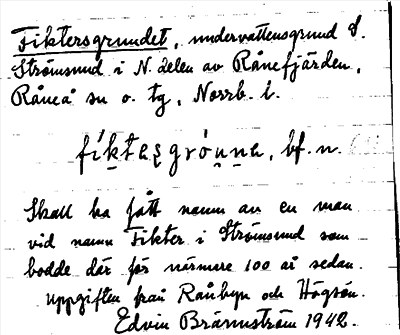 Fiktersgrundet, undervattensgrund S.
Strömsund i N. delen av Rånefjärden,
Råneå sn o. tg, Norrb. l.
fíktesgrónna, bf. n.
Skall ha fått namn av en man
vid namn Fikter i Strömsund som
bodde där för närmare 100 år sedan.
Uppgiften från Rånbyn och Högsön.
Edvin Brännström 1942.